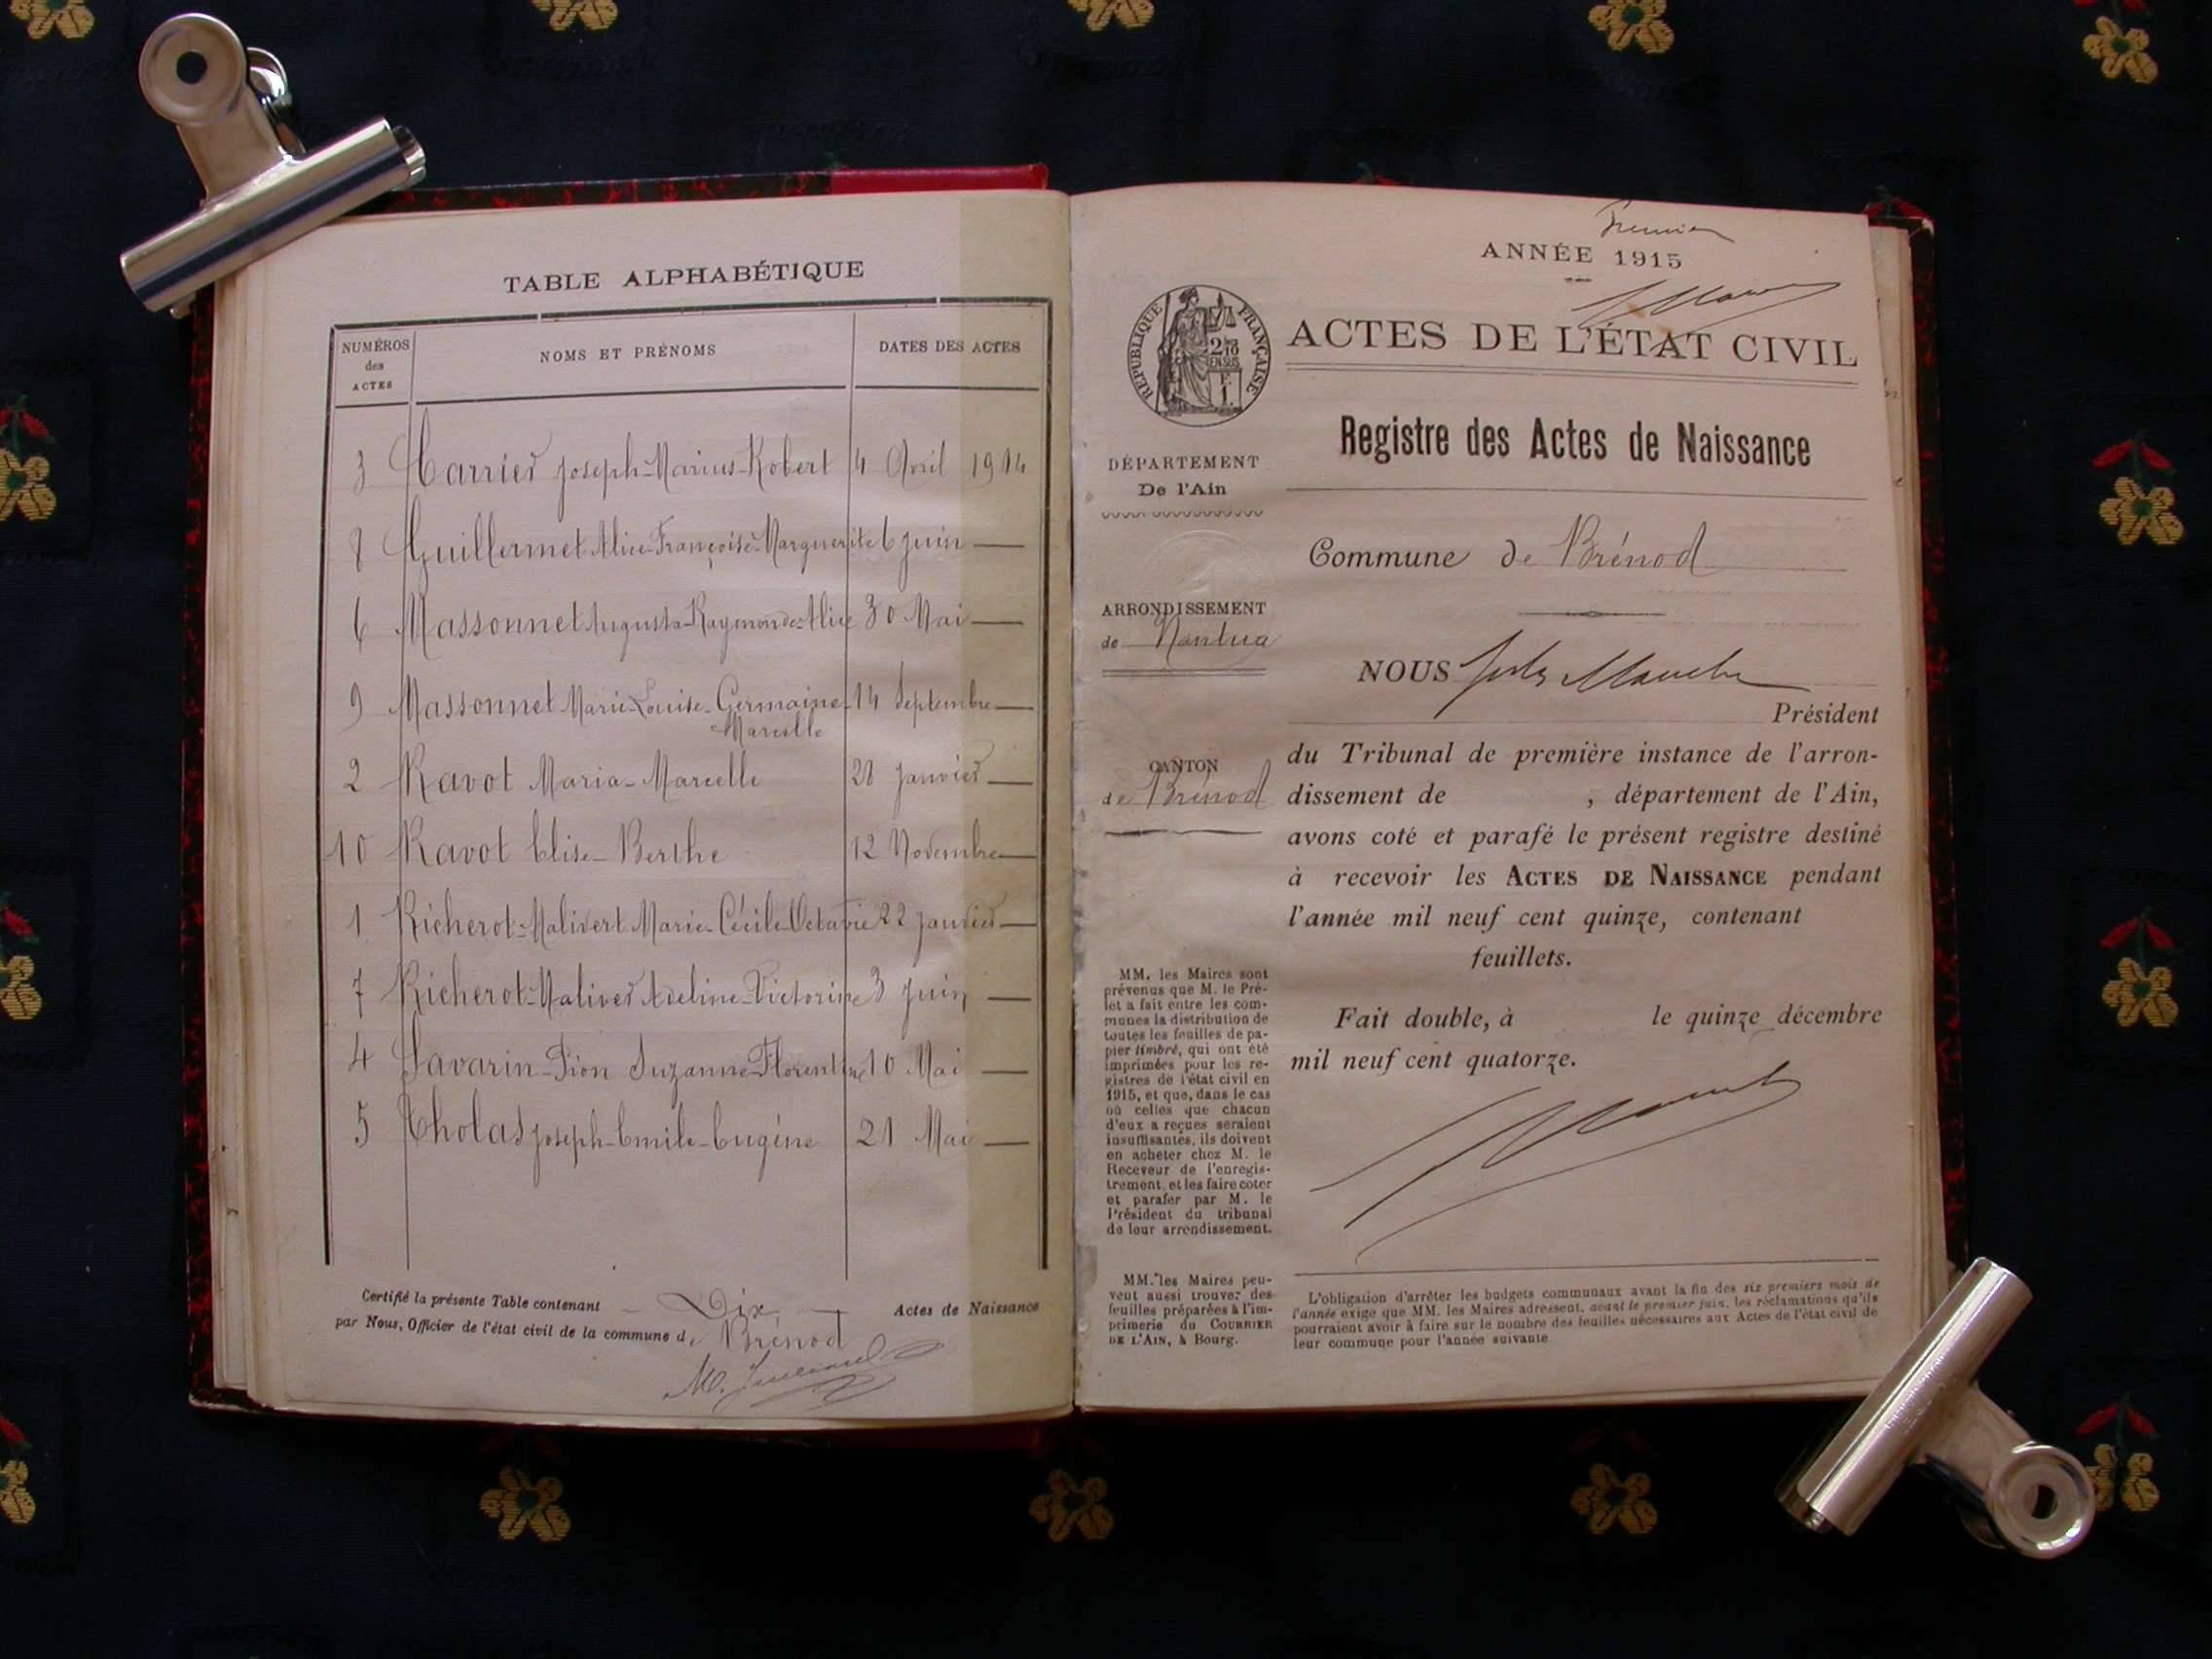 TABLE ALPHABÉTIQUE
NUMÉROS
des
ACTES
NOMS ET PRÉNOMS
DATES DES ACTES
3 Carrier Joseph-Marius-Robert 4 Avril 1914
8 Guillermet Alice-Françoise-Marguerite 6 Juin —
6 Massonnet Augusta-Raymonde-Alice 30 Mai —
9 Massonnet Marie-Louise-Germaine- 14 Septembre —
Marcelle
2 Ravot Maria-Marcelle 28 Janvier —
10 Ravot Elise-Berthe 12 Novembre —
1 Richerot-Malivert Marie-Cécile-Octavie 22 Janvier —
7 Richerot-Maliver Adeline-Victorine 3 Juin —
4 Savarin-Pion Suzanne-Florentine 10 Mai —
5 Tholas Joseph-Emile-Eugène 21 Mai —
Certifié la présente Table contenant — Dix — Actes de Naissance
par Nous, Officier de l'état civil de la commune de Brénod
Premier
ANNÉE 1915
RÉPUBLIQUE FRANÇAISE
2/10
EN SUS
F.
1.
ACTES DE L'ÉTAT CIVIL
Registre des Actes de Naissance
DÉPARTEMENT
De l'Ain
Commune de Brénod
ARRONDISSEMENT
de Nantua
CANTON
de Brénod
NOUS
Président
du Tribunal de première instance de l'arron-
dissement de , département de l'Ain,
avons coté et parafé le présent registre destiné
à recevoir les ACTES DE NAISSANCE pendant
l'année mil neuf cent quinze, contenant
feuillets.
Fait double, à le quinze décembre
mil neuf cent quatorze.
MM. les Maires sont
prévenus que M. le Pré-
fet a fait entre les com-
munes la distribution de
toutes les feuilles de pa-
pier timbré, qui ont été
imprimées pour les re-
gistres de l'état civil en
1915, et que, dans le cas
où celles que chacun
d'eux a reçues seraient
insuffisantes, ils doivent
en acheter chez M. le
Receveur de l'enregis-
trement, et les faire coter
et parafer par M. le
Président du tribunal
de leur arrondissement.
MM. les Maires peu-
vent aussi trouver des
feuilles préparées à l'im-
primerie du COURRIER
DE L'AIN, à Bourg.
L'obligation d'arrêter les budgets communaux avant la fin des six premiers mois de
l'année exige que MM. les Maires adressent, avant le premier juin, les réclamations qu'ils
pourraient avoir à faire sur le nombre des feuilles nécessaires aux Actes de l'état civil de
leur commune pour l'année suivante.